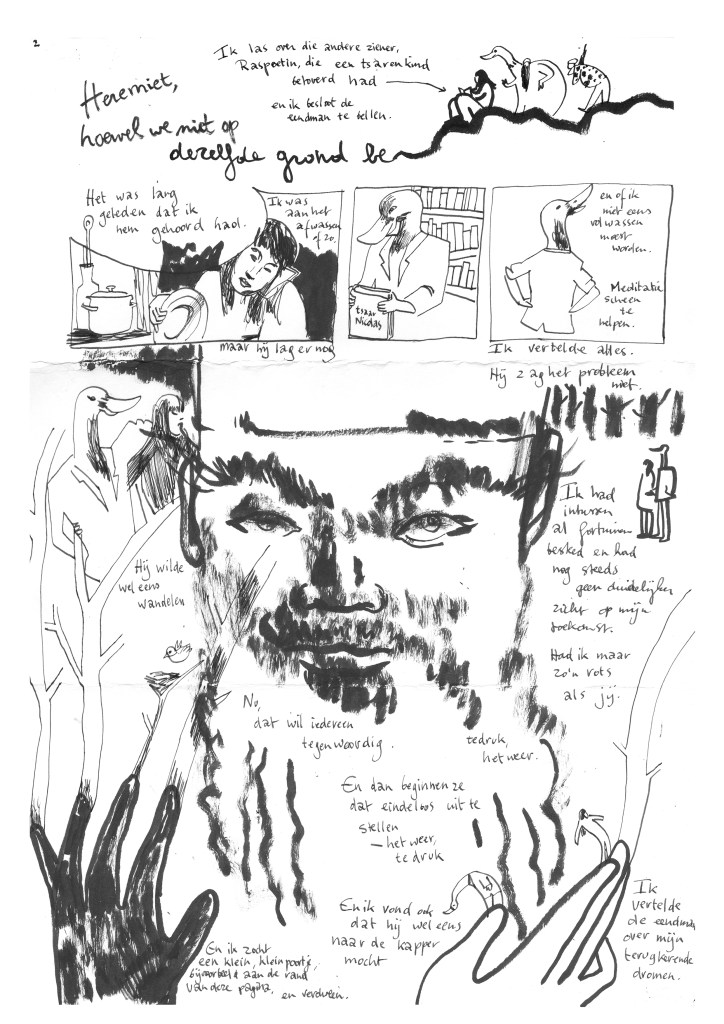 2
Ik las over die andere ziener,
Raspoetin, die een tsarenkind
betoverd had
en ik besloot de
eendman te bellen.
Heremiet,
hoewel we niet op
dezelfde grond be
Het was lang
geleden dat ik
hem gehoord had.
Ik was
aan het
afwassen
of zo,
maar hij lag er nog
tsaar
Nicolas
en of ik
niet eens
volwassen
moest
worden.
Meditatie
scheen
te
helpen.
Ik vertelde alles.
Hij zag het probleem
niet.
Ik had
intussen
al
besteed en had
nog steeds
geen duidelijker
zicht op mijn
toekomst.
Had ik maar
zo'n rots
als jij.
Hij wilde
wel eens
wandelen
No,
dat wil iedereen
tegenwoordig.
te druk,
het weer.
En dan beginnen ze
dat eindeloos uit te
stellen
— het weer,
te druk
En ik vond ook
dat hij wel eens
naar de kapper
mocht
Ik
vertelde
de eendman
over mijn
terugkerende
dromen.
En ik zocht
een klein, klein poortje,
bijvoorbeeld aan de rand
van deze pagina,
en verdween.